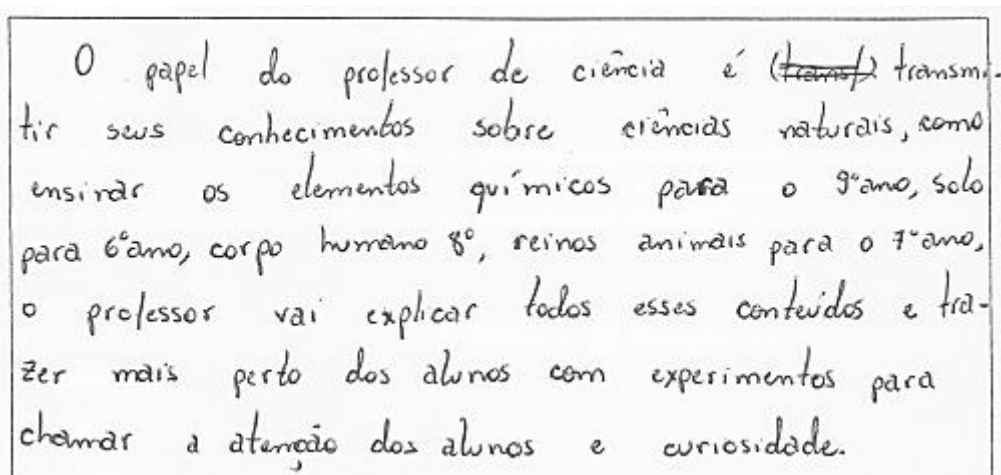 O papel do professor de ciência é (transf) transmi-
tir seus conhecimentos sobre ciências naturais, como
ensinar os elementos químicos para o 9º ano, solo
para 6º ano, corpo humano 8º, reinos animais para o 7º ano,
o professor vai explicar todos esses conteúdos e tra-
zer mais perto dos alunos com experimentos para
chamar a atenção dos alunos e curiosidade.